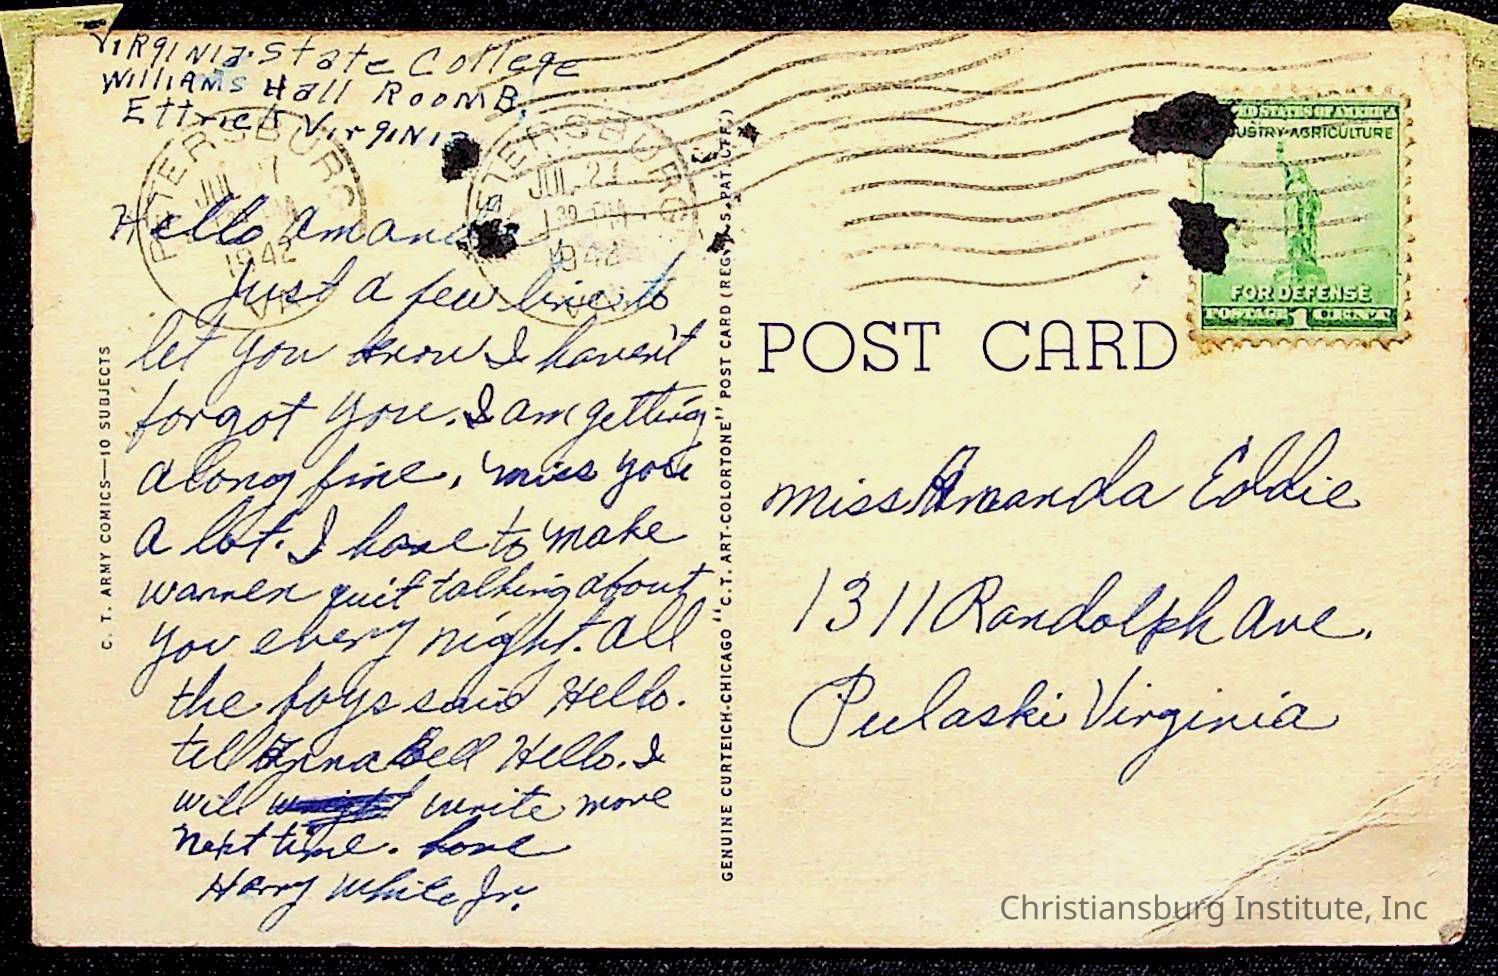 Virginia State College
Williams Hall Room B.
Ettrick Virginia
Hello Amanda
Just a few line to
let you know I haven't
forgot you. I am getting
along fine. miss you
a lot. I have to make
warren quit talking about
you every night. all
the boys said Hello.
tell Anna Bell Hello. I
will write more
next time. Love
Harry White Jr.
C. T. ARMY COMICS—10 SUBJECTS
PETERSBURG
JUL 27
1942
VA
PETERSBURG
JUL 27
1 30 PM
1942
VA
GENUINE CURTEICH-CHICAGO "C.T. ART-COLORTONE" POST CARD (REG. U.S. PAT. OFF.)
UNITED STATES OF AMERICA
INDUSTRY·AGRICULTURE
FOR DEFENSE
POSTAGE 1 CENT
POST CARD
miss Amanda Eddie
1311 Randolph ave.
Pulaski Virginia
Christiansburg Institute, Inc